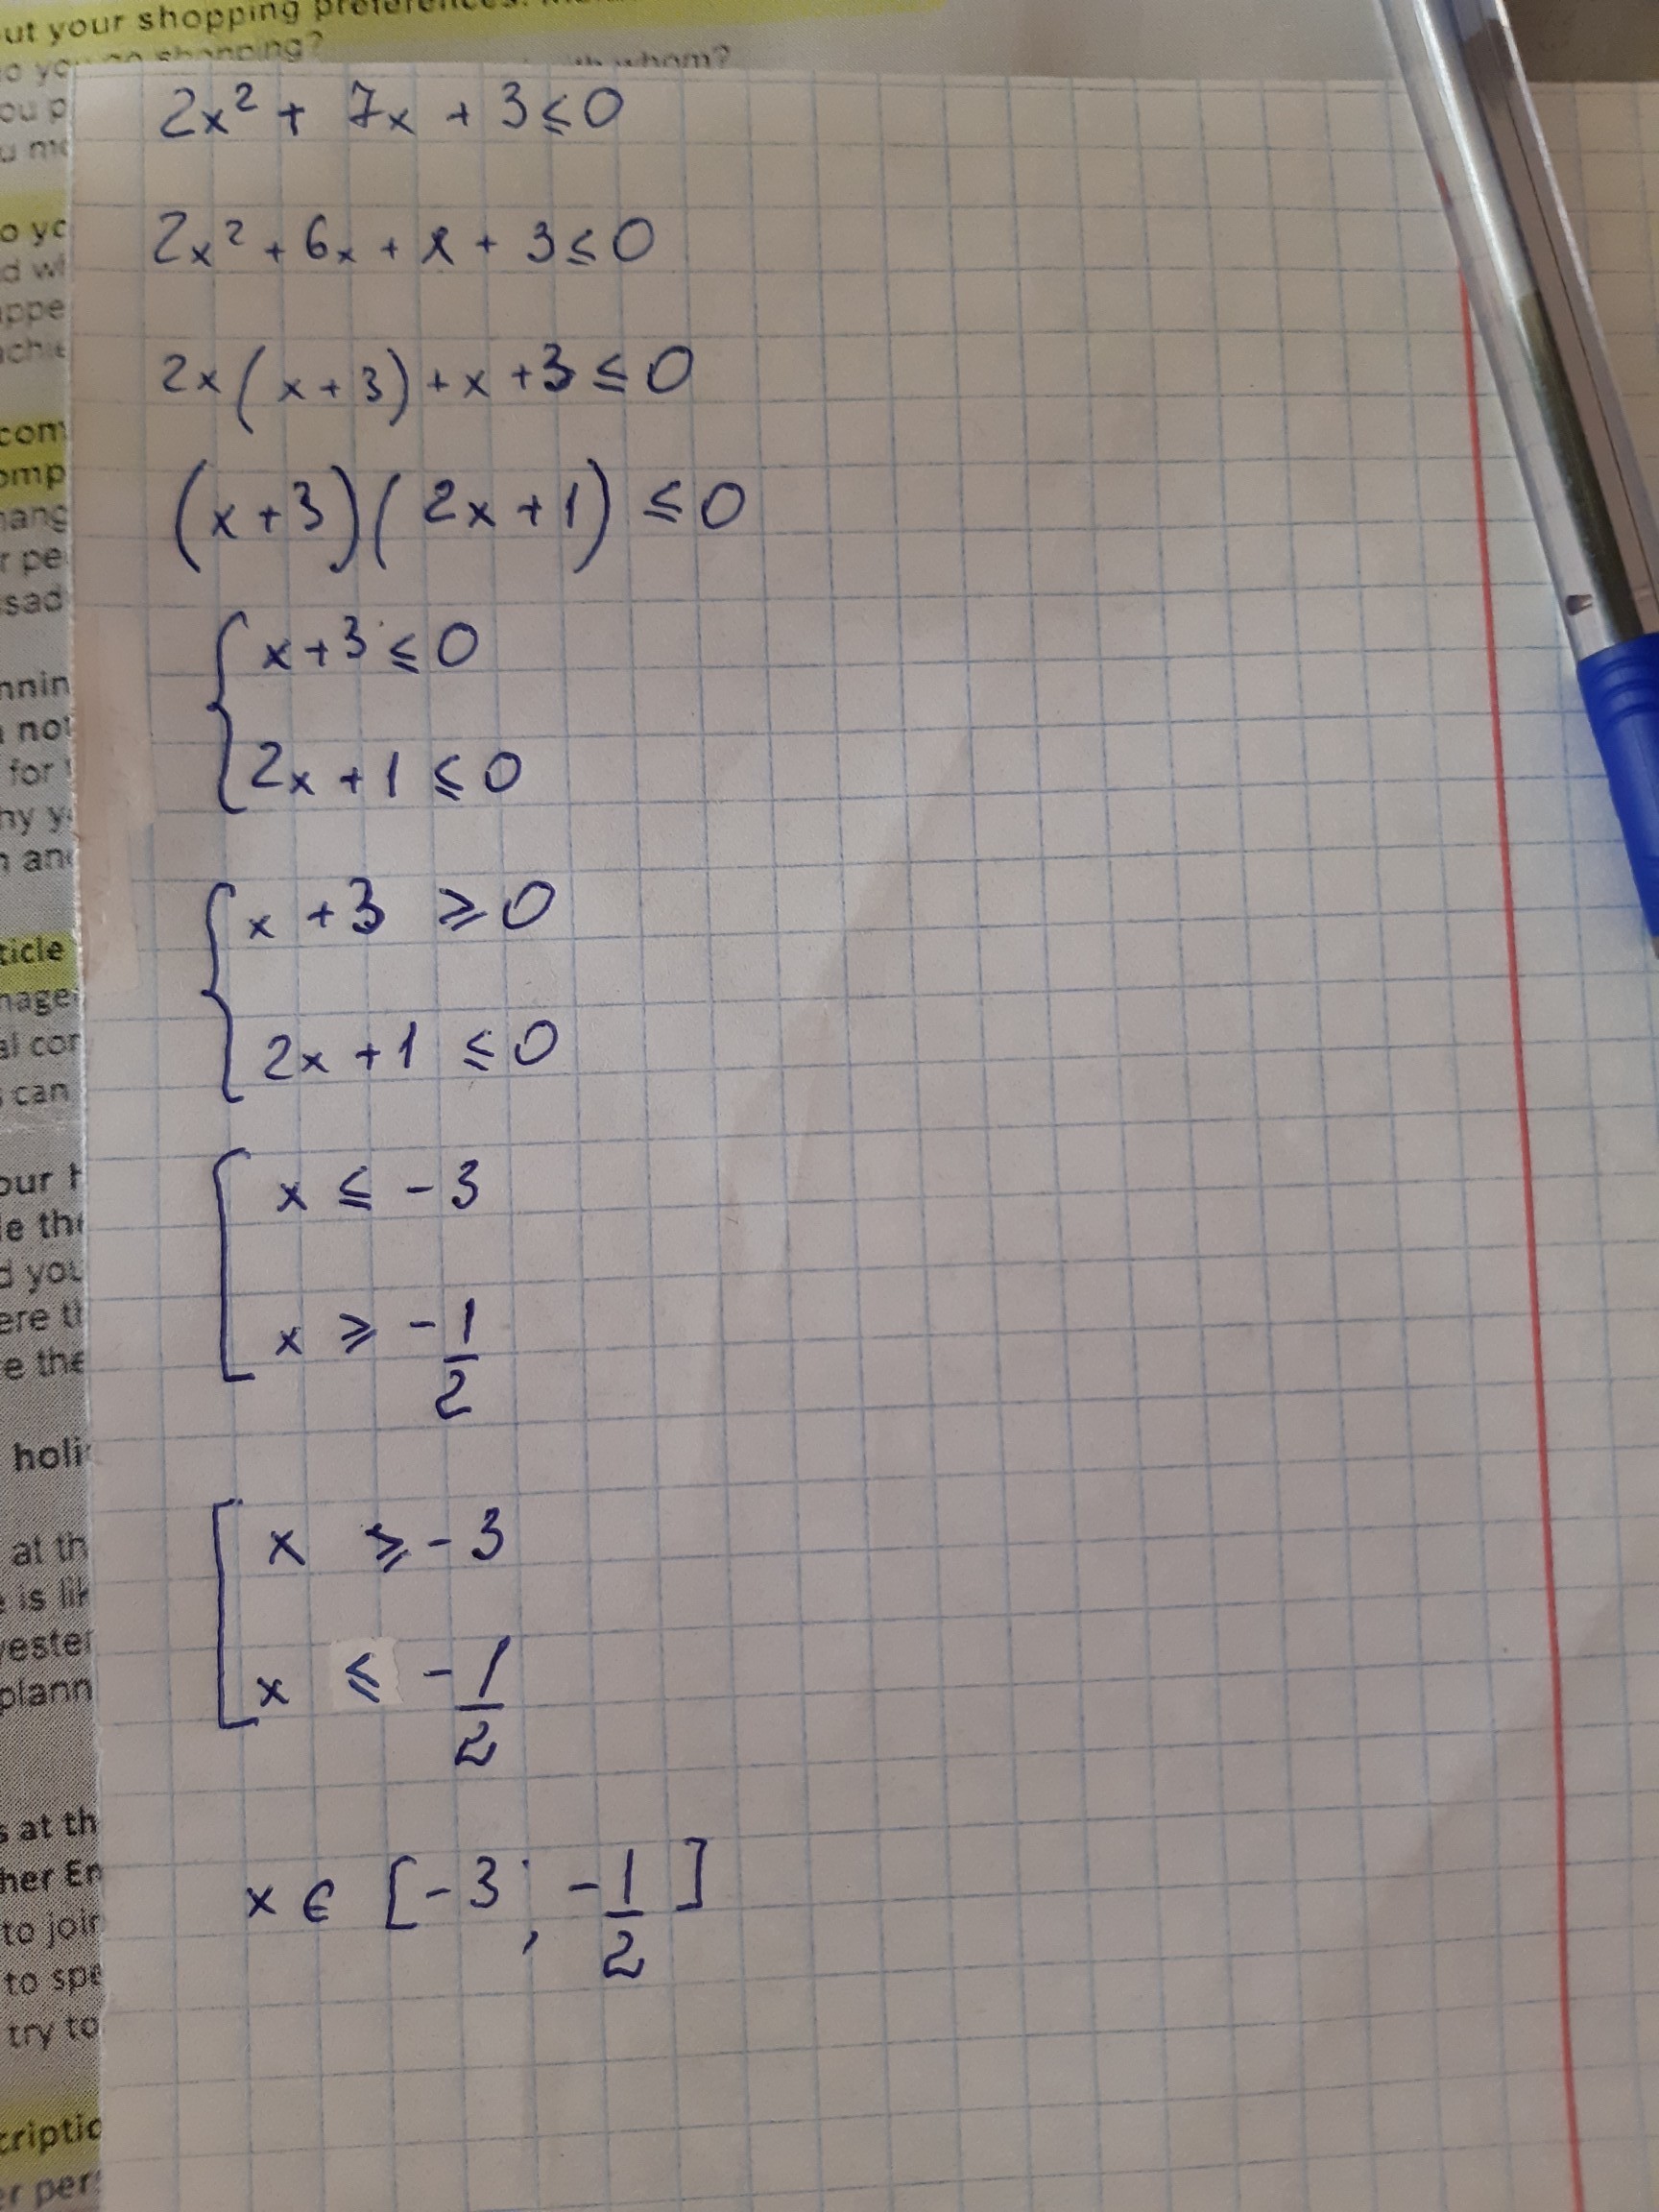 out your shopping preferences.
do you go shopping?
with whom?
ou p
u mo
o yo
d wh
appe
achie
com
omp
hang
r pe
sad
nnin
not
for
hy y
n and
ticle
nage
al cor
can
our h
le the
d you
ere th
e the
holi
at th
e is lik
yester
plann
s at th
her En
to join
to spe
try to
criptio
er pers
2x² + 7x + 3 ≤ 0
2x² + 6x + x + 3 ≤ 0
2x(x+3) + x + 3 ≤ 0
(x+3)(2x+1) ≤ 0
{ x+3 ≤ 0
2x+1 ≤ 0
{ x+3 ≥ 0
2x+1 ≤ 0
[ x ≤ -3
x ≥ -1/2
[ x ≥ -3
x ≤ -1/2
x ∈ [-3; -1/2]